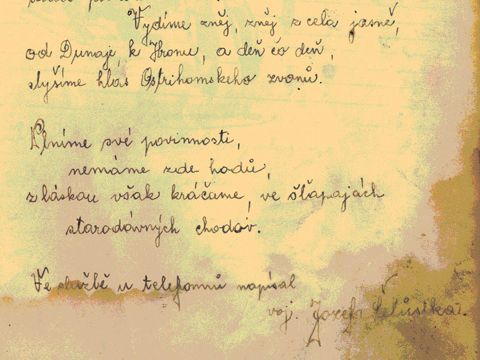 Vydíme zněj, zněj z cela jasně,
od Dunaje, k Hronu, a deň čo deň,
slyšíme hlas Ostrihomskeho zvonů.
Plníme své povinnosti,
nemáme zde hodů,
z láskou však kráčame, ve šlapajách
starodávných chodov.
Ve službě u telefonů napísal
voj. Jozef